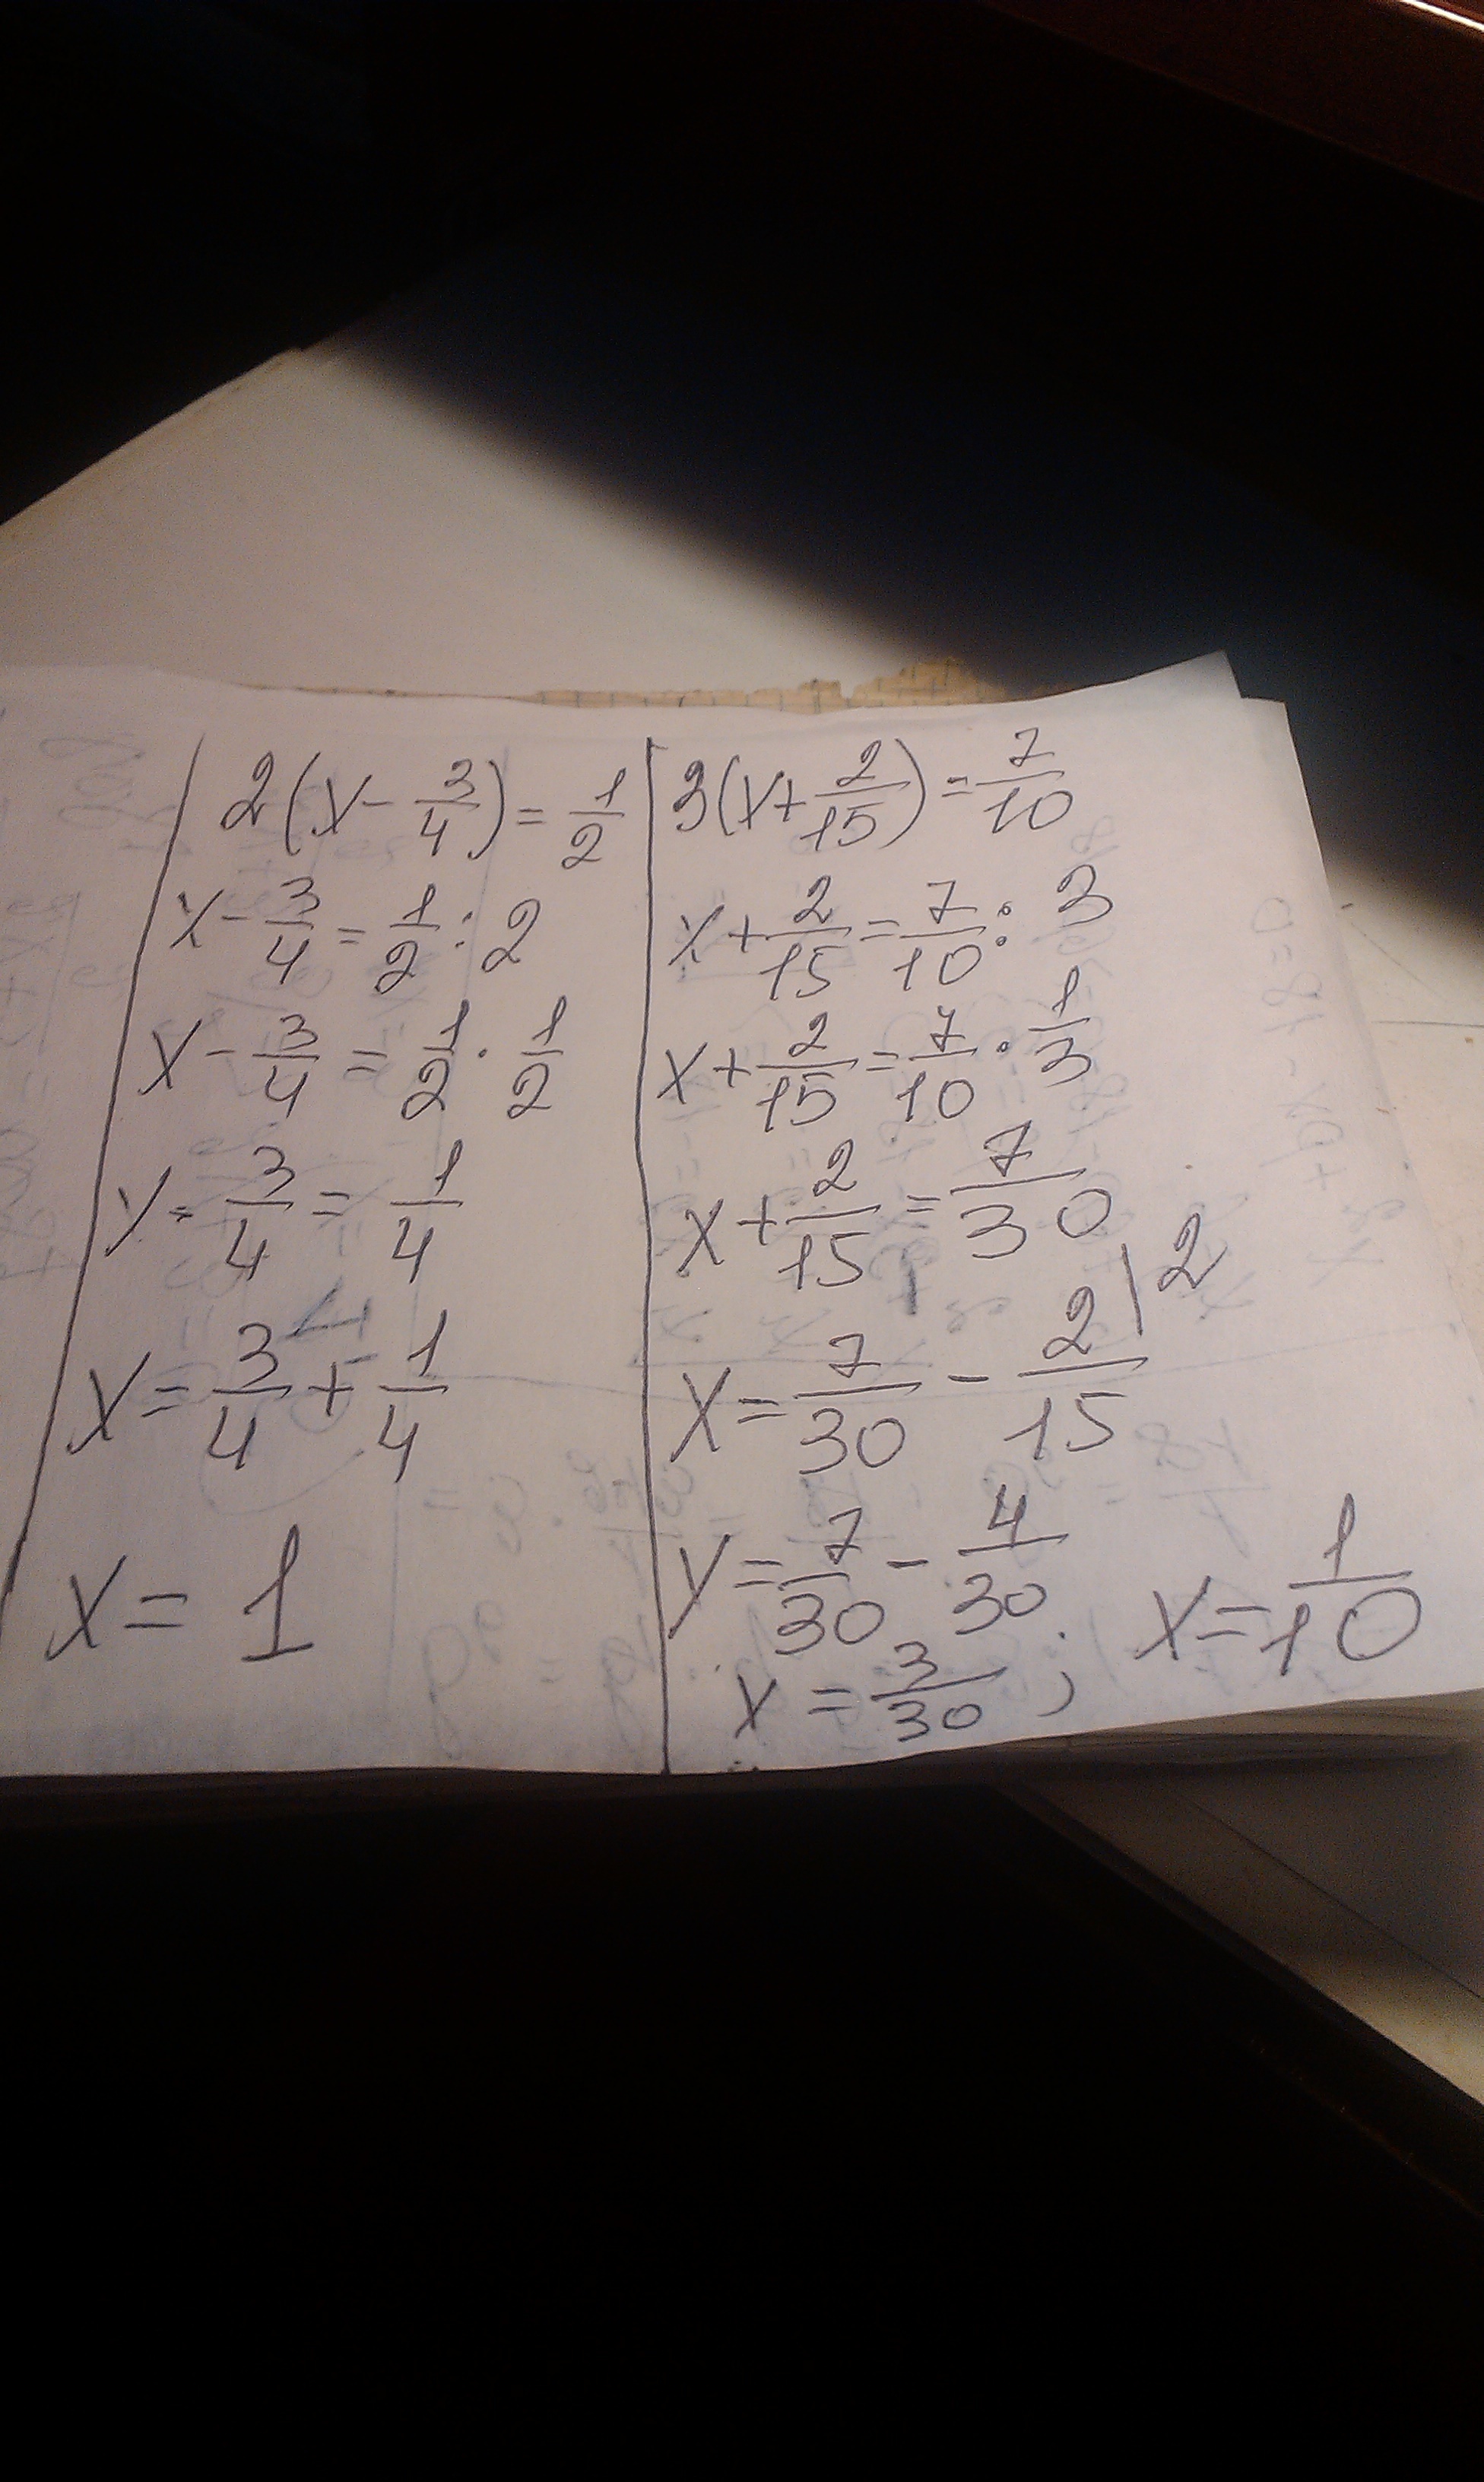 2(x - 3/4) = 1/2
x - 3/4 = 1/2 : 2
x - 3/4 = 1/2 · 1/2
x - 3/4 = 1/4
x = 3/4 + 1/4
x = 1
3(x + 2/15) = 7/10
x + 2/15 = 7/10 : 3
x + 2/15 = 7/10 · 1/3
x + 2/15 = 7/30
x = 7/30 - 2/15 \2
x = 7/30 - 4/30
x = 3/30 ; x = 1/10